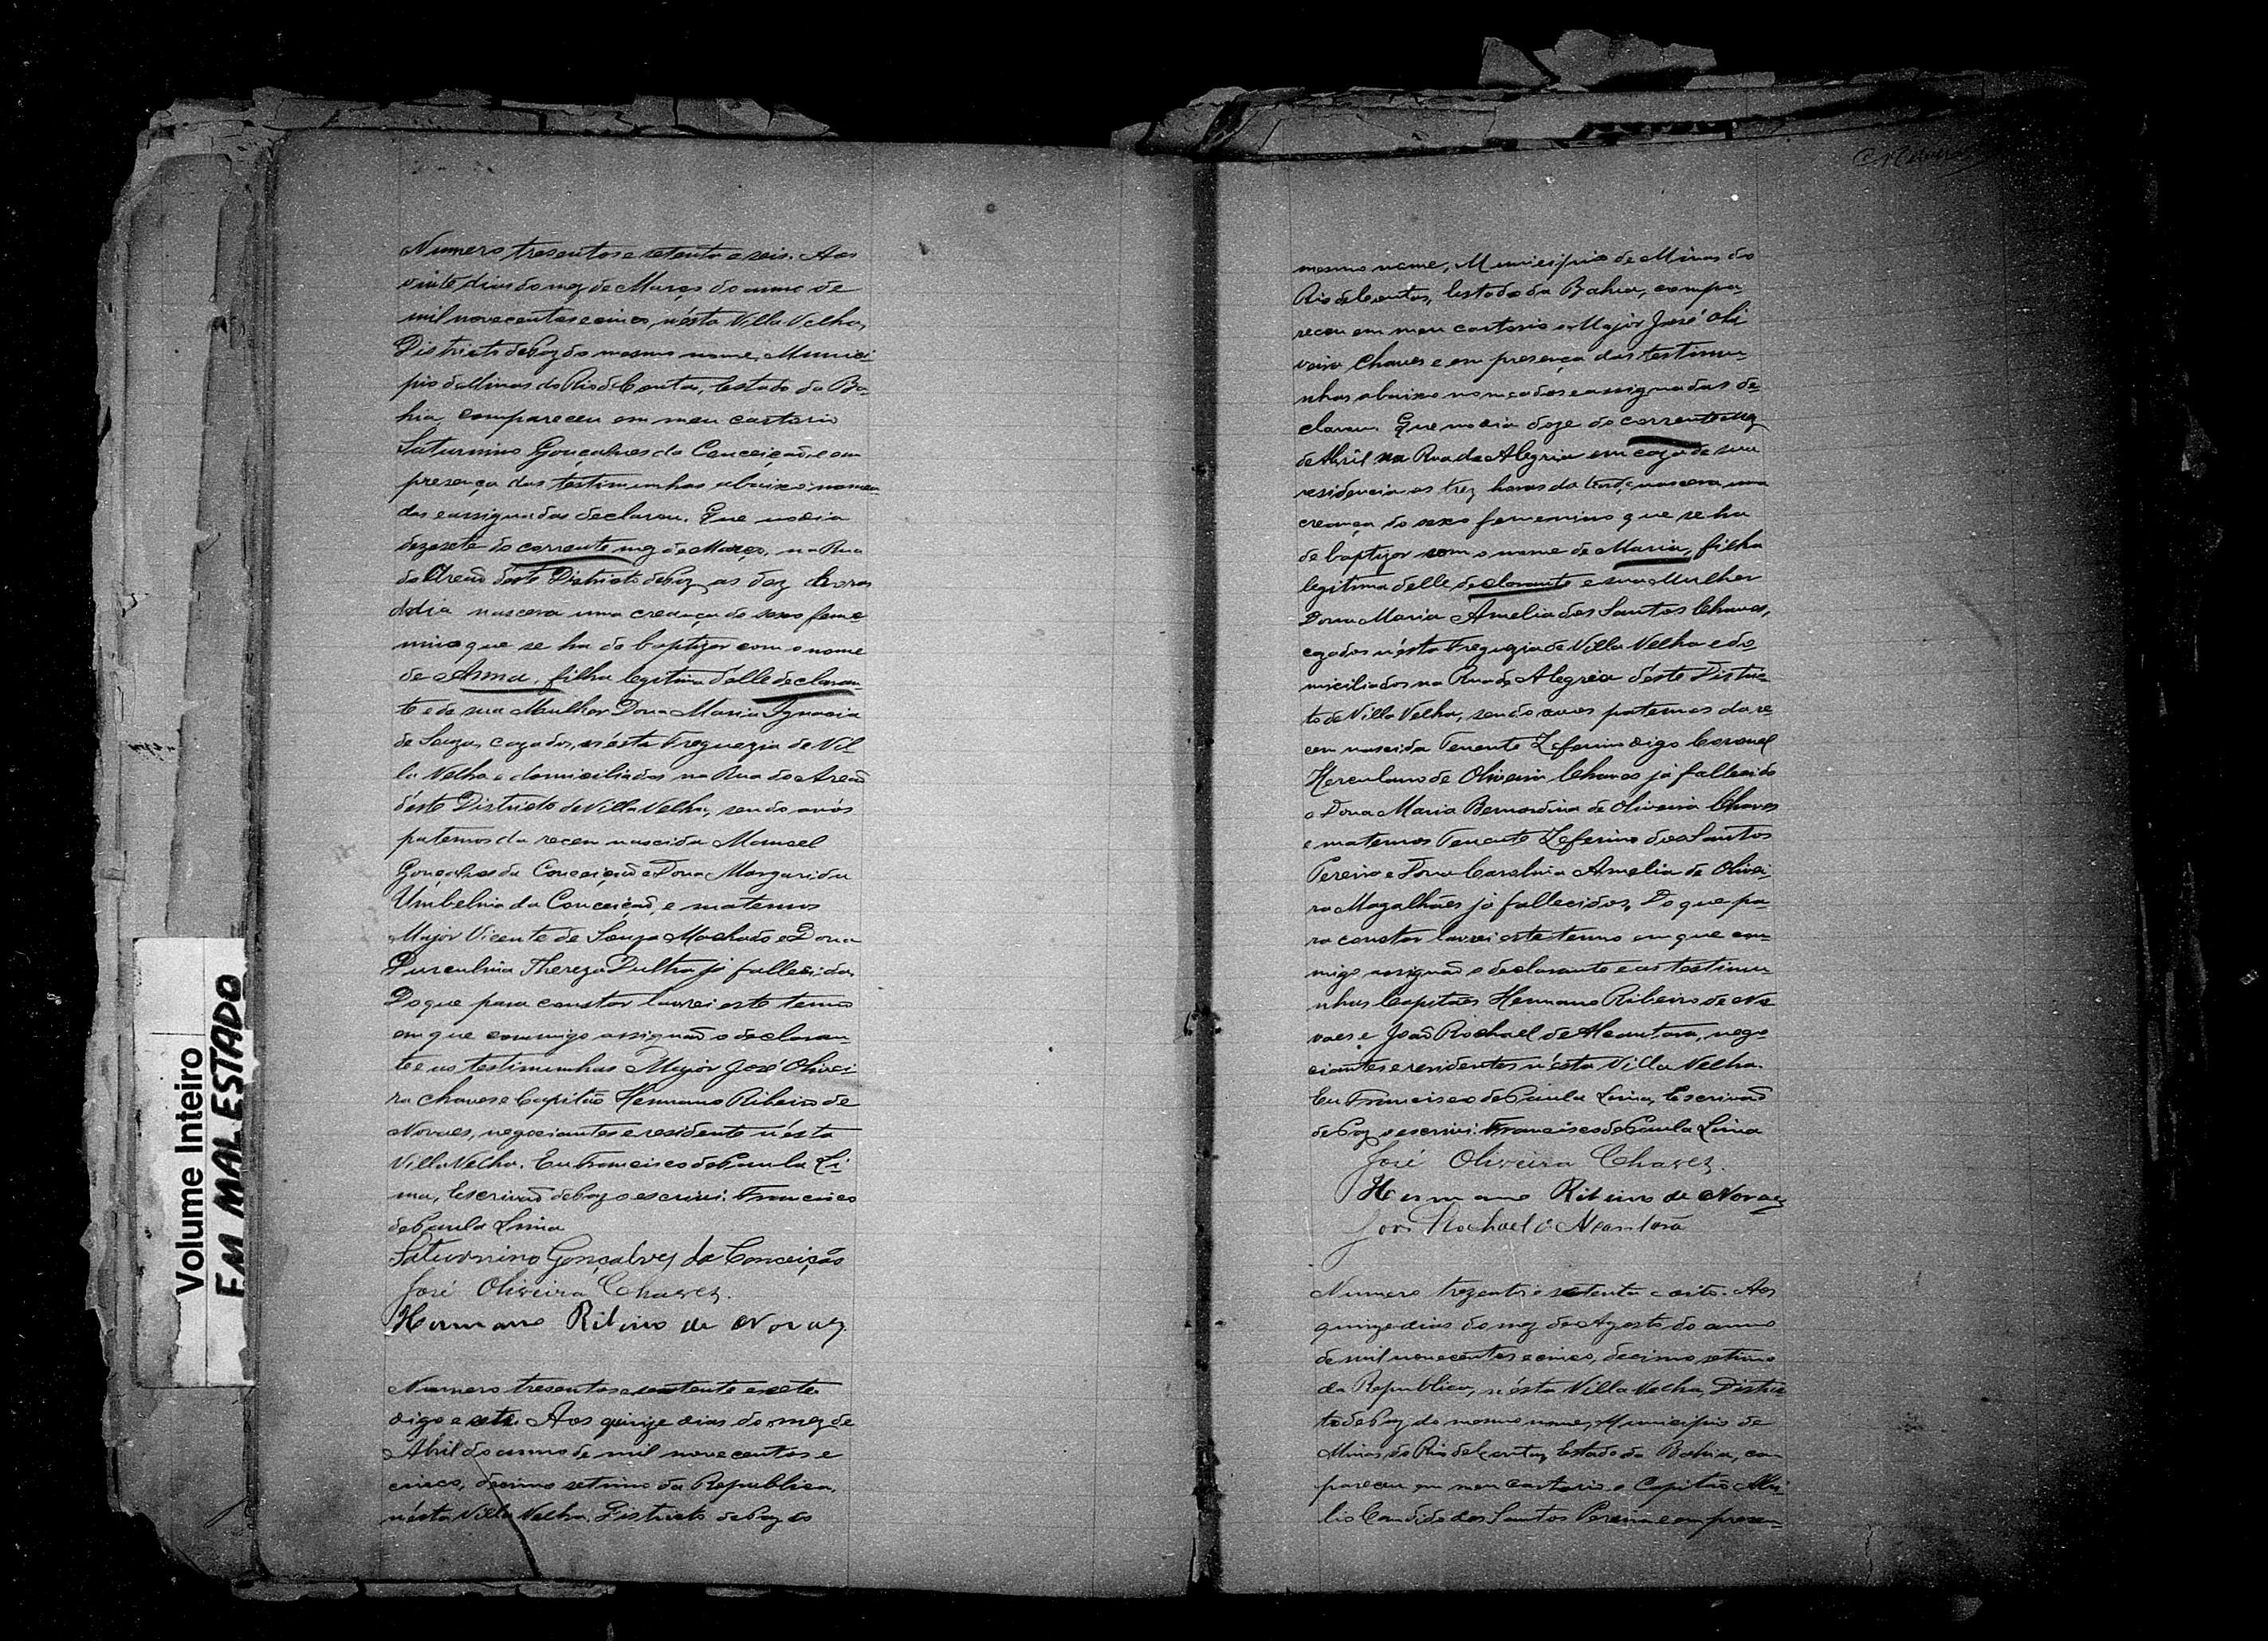 Numero tresentos e setenta e seis. Aos
vinte dias do mez de Março do anno de
mil novecentos e cinco, n'ésta Villa Velha,
Districto de Paz do mesmo nome, Munici-
pio de Minas do Rio de Contas, Estado da Ba-
hia, compareceu em meu cartorio
Saturnino Gonçalves da Conceição, e em
presença das testimunhas abaixo nomea-
das e assignadas declarou. Que no dia
dezesete do corrente mez de Março, na Rua
do Areão d'este Districto de Paz, as dez horas
do dia nascera uma creança do sexo feme-
nino que se ha de baptizar com o nome
de Anna, filha legitima delle declaran-
te e de sua Mulher Dona Maria Ignacia
de Souza, cazados, n'ésta Freguezia de Vil-
la Velha e domiciliados na Rua do Areão
d'este Districto de Villa Velha, sendo avós
paternos da recem nascida Manoel
Gonçalves da Conceição e Dona Margarida
Umbelina da Conceição, e maternos
Major Vicente de Souza Machado e Dona
Thereza Dultra já fallecida,
Do que para constar lavrei este termo
em que commigo assignão o declaran-
te e as testimunhas Major José Olivei-
ra Chaves e Capitão Hermano Ribeiro de
Novaes, negociantes e residente n'ésta
Villa Velha. Eu Francisco de Paula Li-
ma, Escrivão de Paz o escrivi. Francisco
de Paula Lima
Saturnino Gonçalves da Conceição
José Oliveira Chaves.
Hermano Ribeiro de Novaes.
Numero tresentos e setenta e sete
digo e sete. Aos quinze dias do mez de
Abril do anno de mil novecentos e
cinco, decimo setimo da Republica,
n'ésta Villa Velha, Districto de Paz do
mesmo nome, Municipio de Minas do
Rio de Contas, Estado da Bahia, compa-
receu em meu cartorio o Major José Oli
veira Chaves e em presença das testimu-
nhas abaixo nomeadas e assignadas de-
clarou. Que no dia doze do corrente mez
de Abril na Rua da Alegria em caza de sua
residencia as trez horas da tarde, nascera uma
creança do sexo femenino que se ha
de baptizar com o nome de Maria, filha
legitima delle declarante e sua Mulher
Dona Maria Amelia dos Santos Chaves,
cazados n'ésta Freguezia de Villa Velha e do-
miciliados na Rua da Alegria d'este Distric-
to de Villa Velha, sendo avos paternos da re-
cem nascida Tenente Zeferino digo Coronel
Herculano de Oliveira Chaves já fallecido
e Dona Maria Bernardina de Oliveira Chaves
e maternos Tenente Zeferino dos Santos
Pereira e Dona Carolina Amelia de Olivei-
ra Magalhães já fallecidos, Do que pa-
ra constar lavrei este termo em que com-
migo assignão o declarante e as testimu-
nhas Capitães Hermano Ribeiro de No
vaes e João Rochael de Alcantara, nego-
ciantes e residentes n'ésta Villa Velha.
Eu Francisco de Paula Lima, Escrivão
de Paz o escrivi. Francisco de Paula Lima
José Oliveira Chaves.
Hermano Ribeiro de Novaes
João Rochael d'Alcantara
Numero trezentos e setenta e oito. Aos
quinze dias do mez de Agosto do anno
de mil novecentos e cinco, decimo setimo
da Republica, n'ésta Villa Velha, Distric
to de Paz do mesmo nome, Municipio de
Minas do Rio de Contas, Estado da Bahia, com
pareceu em meu cartorio o Capitão
Candido dos Santos Pereira e em presen-
Volume Inteiro
EM MAL ESTADO